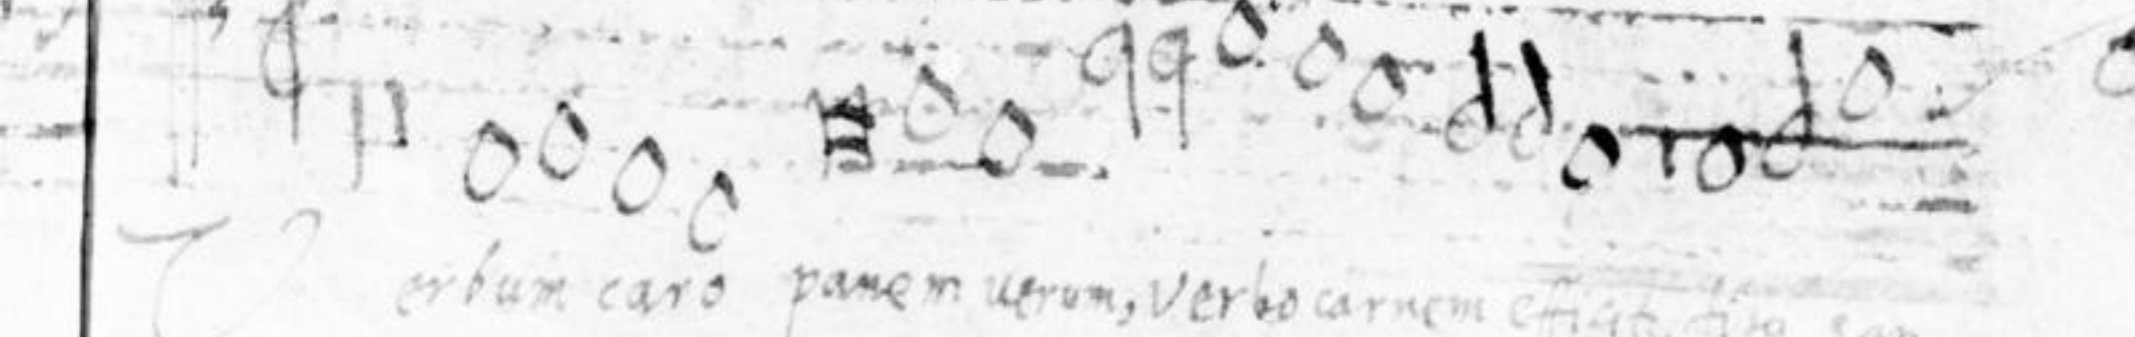 Verbum caro panem uerum, Verbo carnem efficit,